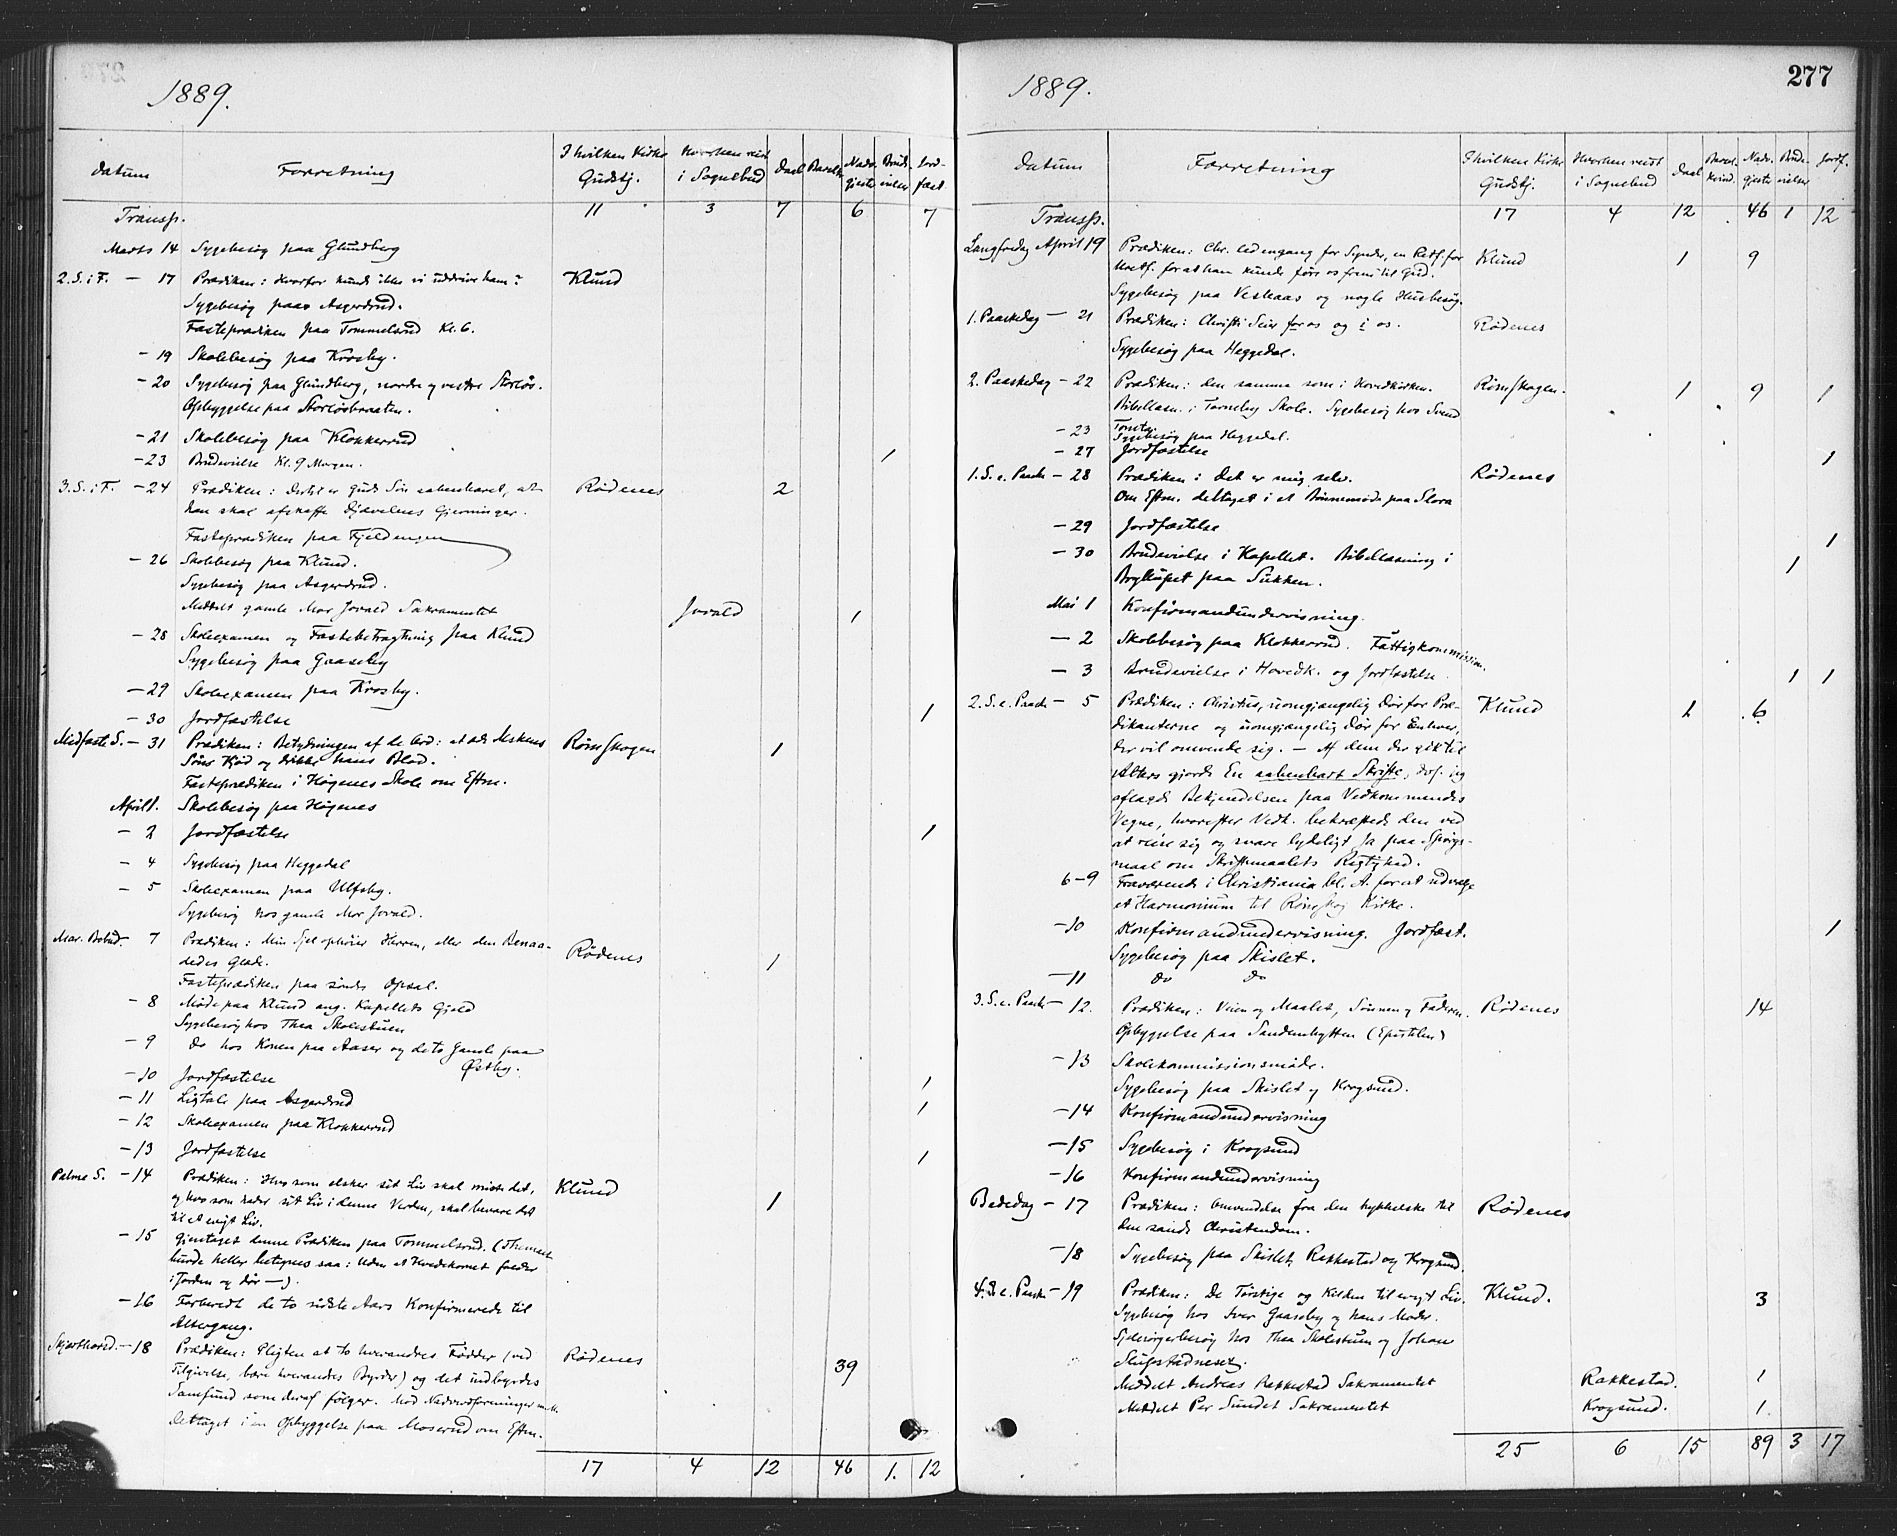 1889.
Datum Forretning I hvilken Kirke Gudstj. Hvorhen reist i Sognebud Daab Barselk. Nadv. gjester Brude vielser Jord- fæst.
Transp. 11 3 7 6 7
Marts 14 Sygebesøg paa Glundberg
2. S. i F. — 17 Prædiken: Hvorfor kunde ikke vi uddrive ham? Klund
Sygebesøg paa Asgerdrud.
Fasteprædiken paa Tommelsrud Kl. 6.
- 19 Skolebesøg paa Krosby.
- 20 Sygebesøg paa Glundberg, nordre og vestre Storløs.
Opbyggelse paa Storløsbraaten.
- 21 Skolebesøg paa Klokkerud
- 23 Brudevielse Kl. 9 Morgen. 1
3. S. i F. - 24 Prædiken: Dertil er Guds Søn aabenbaret, at Rødenes 2
han skal afskaffe Djævelens Gjerninger.
Fasteprædiken paa Fjeldengen
- 26 Skolebesøg paa Klund.
Sygebesøg paa Asgerdrud.
Meddelt gamle Mor Jovald Sakramentet Jovald 1
- 28 Skoleexamen og Fastebetragtning paa Klund
Sygebesøg paa Gaaseby
- 29 Skoleexamen paa Krosby.
- 30 Jordfæstelse 1
Midfaste S. - 31 Prædiken: Betydningen af de Ord: at æde Menskens Rømskogen 1
Søns Kjød og drikke hans Blod.
Fasteprædiken i Høgenes Skole om Eftm.
April 1. Skolebesøg paa Høgenes
- 2 Jordfæstelse 1
- 4 Sygebesøg paa Heggedal
- 5 Skoleexamen paa Ulfsby.
Sygebesøg hos gamle Mor Jovald.
Mar. Bebud. - 7 Prædiken: Min Sjel ophøier Herren, eller den Benaa- Rødenes 1
dedes Glæde.
Fasteprædiken paa søndre Opsal.
- 8 Møde paa Klund ang. Kapellets Gjeld
Sygebesøg hos Thea Skolestuen
- 9 Do hos Konen paa Aaser og de to Gamle paa
Østby.
- 10 Jordfæstelse 1
- 11 Ligtale paa Asgerdrud 1
- 12 Skoleexamen paa Klokkerud
- 13 Jordfæstelse 1
Palme S. - 14 Prædiken: Hvo som elsker sit Liv skal miste det, Klund 1
og hvo som hader sit Liv i denne Verden, skal bevare det
til et evigt Liv.
- 15 Gjentaget denne Prædiken paa Tommelsrud. (Themaet
burde heller betegnes saa: Uden at Hvedekornet falder
i Jorden og dør —).
- 16 Forberedt de to sidste Aars Konfirmerede til
Altergang.
Skjærthorsd. - 18 Prædiken: Pligten at to hverandres Fødder (ved Rødenes 39
Tilgivelse, bære hverandres Byrder) og det indbyrdes
Samfund som deraf følger. Mod Nadverdforeninger
Deltaget i en Opbyggelse paa Moserud om Eftm.
17 4 12 46 1. 12
1889. 277
Datum Forretning I hvilken Kirke Gudstj. Hvorhen reist i Sognebud Daab Barsel kvind. Nadv. gjester Brude- vielser Jordf.
Transp. 17 4 12 46 1 12
Langfredag April 19 Prædiken: Chr. led engang for Synder, en Retf. for Klund 1 9
Uretf. for at han kunde føre os frem til Gud.
Sygebesøg paa Veskaas og nogle Husbesøg.
1. Paaskedag — 21 Prædiken: Christi Seier for os og i os. Rødenes
Sygebesøg paa Heggedal.
2. Paaskedag - 22 Prædiken: den samme som i Hovedkirken. Rømskogen. 1 9 1
Bibellæsn. i Tørneby Skole. Sygebesøg hos Svend
- 23 Sygebesøg paa Heggedal.
- 27 Jordfæstelse 1
1. S. e. Paaske - 28 Prædiken: Det er mig selv. Rødenes
Om Eftm. deltaget i et Bønnemøde paa Slora
- 29 Jordfæstelse 1
- 30 Brudevielse i Kapellet. Bibellæsning i 1
Bryllupet paa Sukken.
Mai 1 Konfirmandundervisning
- 2 Skolebesøg paa Klokkerud. Fattigkommission.
- 3 Brudevielse i Hovedk. og Jordfæstelse 1 1
2. S. e. Paaske - 5 Prædiken: Christus, uomgjængelig Dør for Præ- Klund 1 6
dikanterne og uomgjængelig Dør for Enhver,
der vil omvende sig. — Af dem der gik til
Alters gjorde En aabenbart Skrifte, dvs. jeg
aflagde Bekjendelsen paa Vedkommendes
Vegne, hvorefter Vedk. bekræftede den ved
at reise sig og svare lydeligt Ja paa Spørgs-
maal om Skriftemaalets Rigtighed.
6-9 Fraværende i Christiania bl. A. for at udvælge
et Harmonium til Rømskog Kirke.
- 10 Konfirmandundervisning. Jordfæst. 1
Sygebesøg paa Skislet.
- 11 Do Do
3. S. e. Paaske - 12. Prædiken: Veien og Maalet, Sønnen og Faderen. Rødenes 14
Opbyggelse paa Sandemhytten (Epistelen)
- 13 Skolekommissionsmøde.
Sygebesøg paa Skislet og Krogsund.
- 14 Konfirmandundervisning
- 15 Sygebesøg i Krogsund
- 16 Konfirmandundervisning
Bededag - 17 Prædiken: Omvendelse fra den hykkelske til Rødenes
den sande Christendom.
- 18 Sygebesøg paa Skislet, Rakkestad og Krogsund.
4. S. e. Paaske - 19 Prædiken: De Tørstige og Kilden til evigt Liv. Klund. 3
Sygebesøg hos Iver Gaaseby og hans Moder.
Sjelesørgerbesøg hos Thea Skolestuen og Johan
Slupstadneset.
Meddelt Andreas Rakkestad Sakramentet Rakkestad. 1
Meddelt Per Sundet Sakramentet Krogsund. 1.
25 6 15 89 3 17